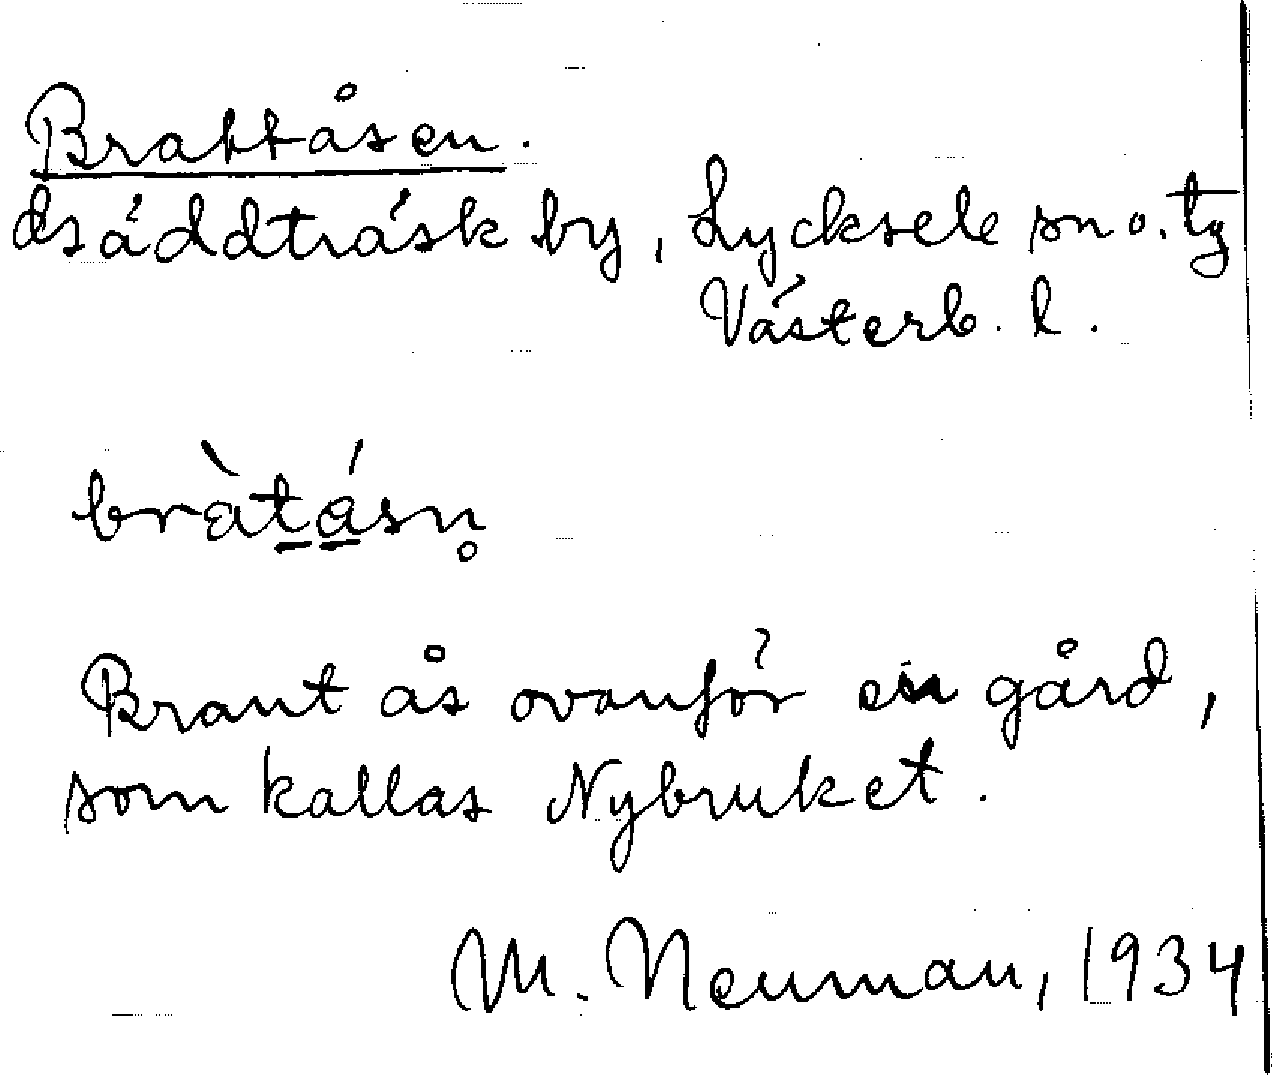 Brattåsen.
Lsäddträsk by, Lycksele sn o. tg
Västerb. l.
bràtásn̥
Brant ås ovanför en gård,
som kallas Nybruket.
M. Neuman, 1934